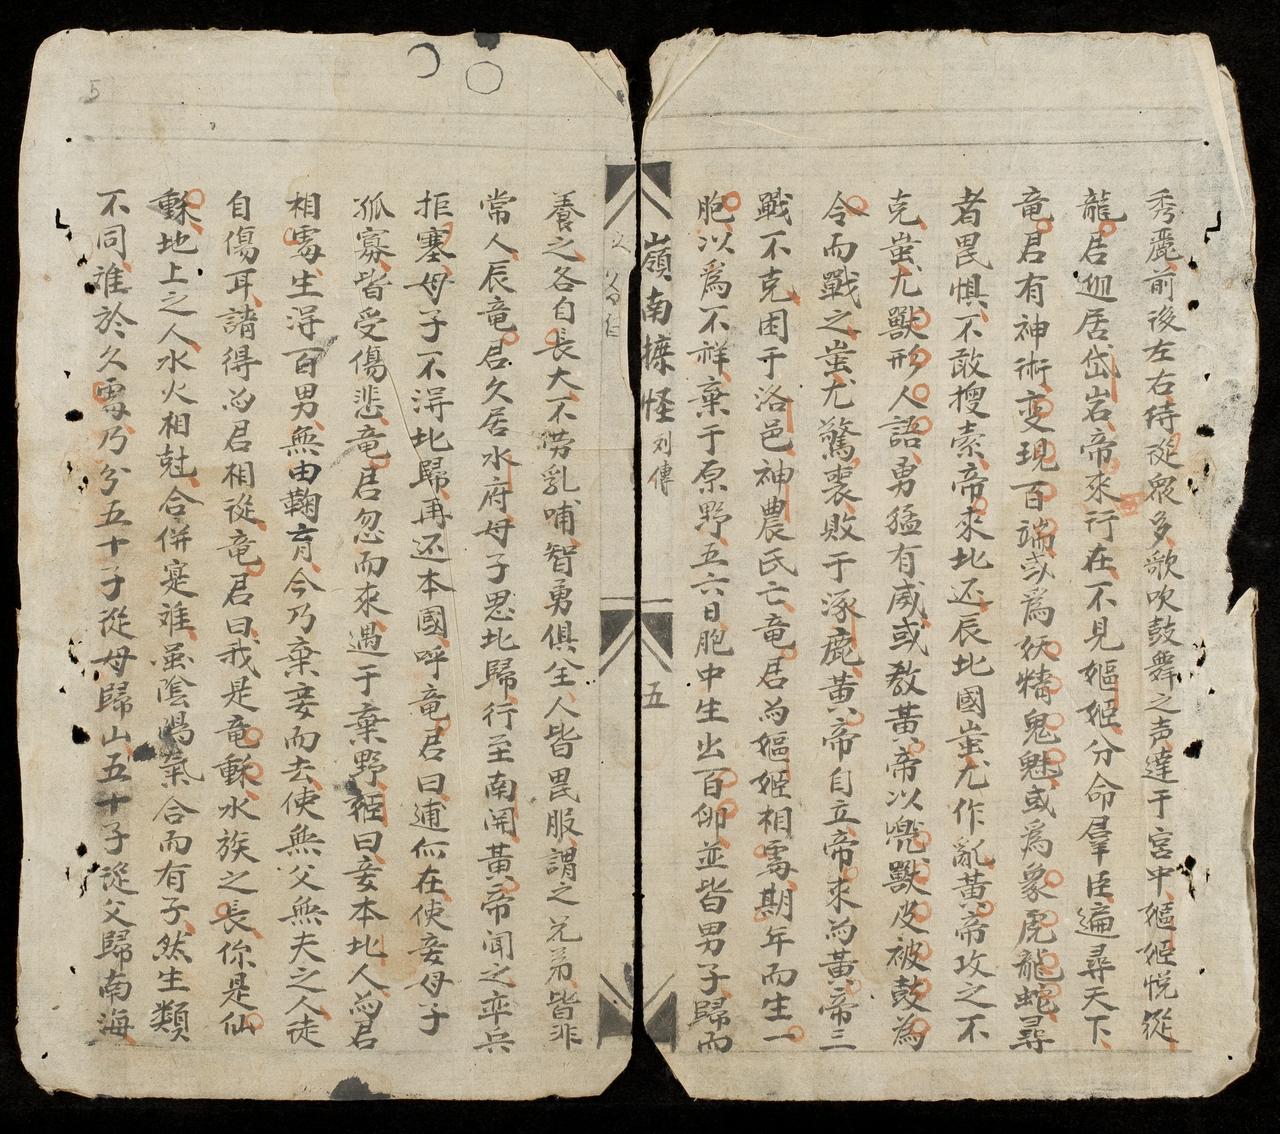 秀麗前後左右侍從衆多歌吹鼓舞之声達于宮中嫗姬悅從
龍君迎居岱岩帝來行在不見嫗姬分命羣臣遍尋天下
竜君有神術变現百端或爲妖精鬼魅或爲象虎龍蛇尋
者畏惧不敢搜索帝來北还辰北國蚩尤作亂黃帝攻之不
克蚩尤獸形人語勇猛有威或教黃帝以兕獸皮被鼓為
令而戰之蚩尤驚衷敗于涿鹿黃帝自立帝來为黃帝三
戰不克困于洛邑神農氏亡竜君为嫗姬相䖏期年而生一
胞以爲不祥棄于原野五六日胞中生出百卵並皆男子歸而
嶺南摭怪列傳
五
養之各自長大不劳乳哺智勇俱全人皆畏服謂之兄弟皆非
常人辰竜君久居水府母子思北歸行至南関黃帝闻之率兵
拒塞母子不淂北歸再还本國呼竜君曰逋何在使妾母子
孤寡皆受傷悲竜君忽而來遇于棄野姬曰妾本北人为君
相䖏生淂百男無由鞠育今乃棄妾而去使無父無夫之人徒
自傷耳請得为君相從竜君曰我是竜種水族之長你是仙
種地上之人水火相尅合併寔难虽陰陽氣合而有子然生類
不同难於久䖏乃分五十子從母歸山五十子從父歸南海
5